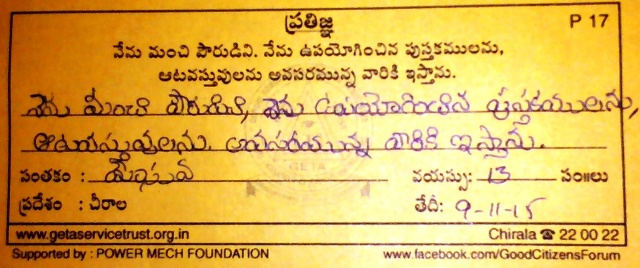 ప్రతిజ్ఞ P 17
నేను మంచి పౌరుడిని. నేను ఉపయోగించిన పుస్తకములను,
ఆటవస్తువులను అవసరమున్న వారికి ఇస్తాను.
నేను మంచి పౌరుడిని, నేను ఉపయోగించిన పుస్తకములను,
ఆటవస్తువులను. అవసరమున్న వారికి ఇస్తాను.
సంతకం : వయస్సు: 13 సం॥లు
ప్రదేశం : చీరాల తేదీ: 9-11-15
www.getaservicetrust.org.in Chirala ☎ 22 00 22
Supported by : POWER MECH FOUNDATION www.facebook.com/GoodCitizensForum